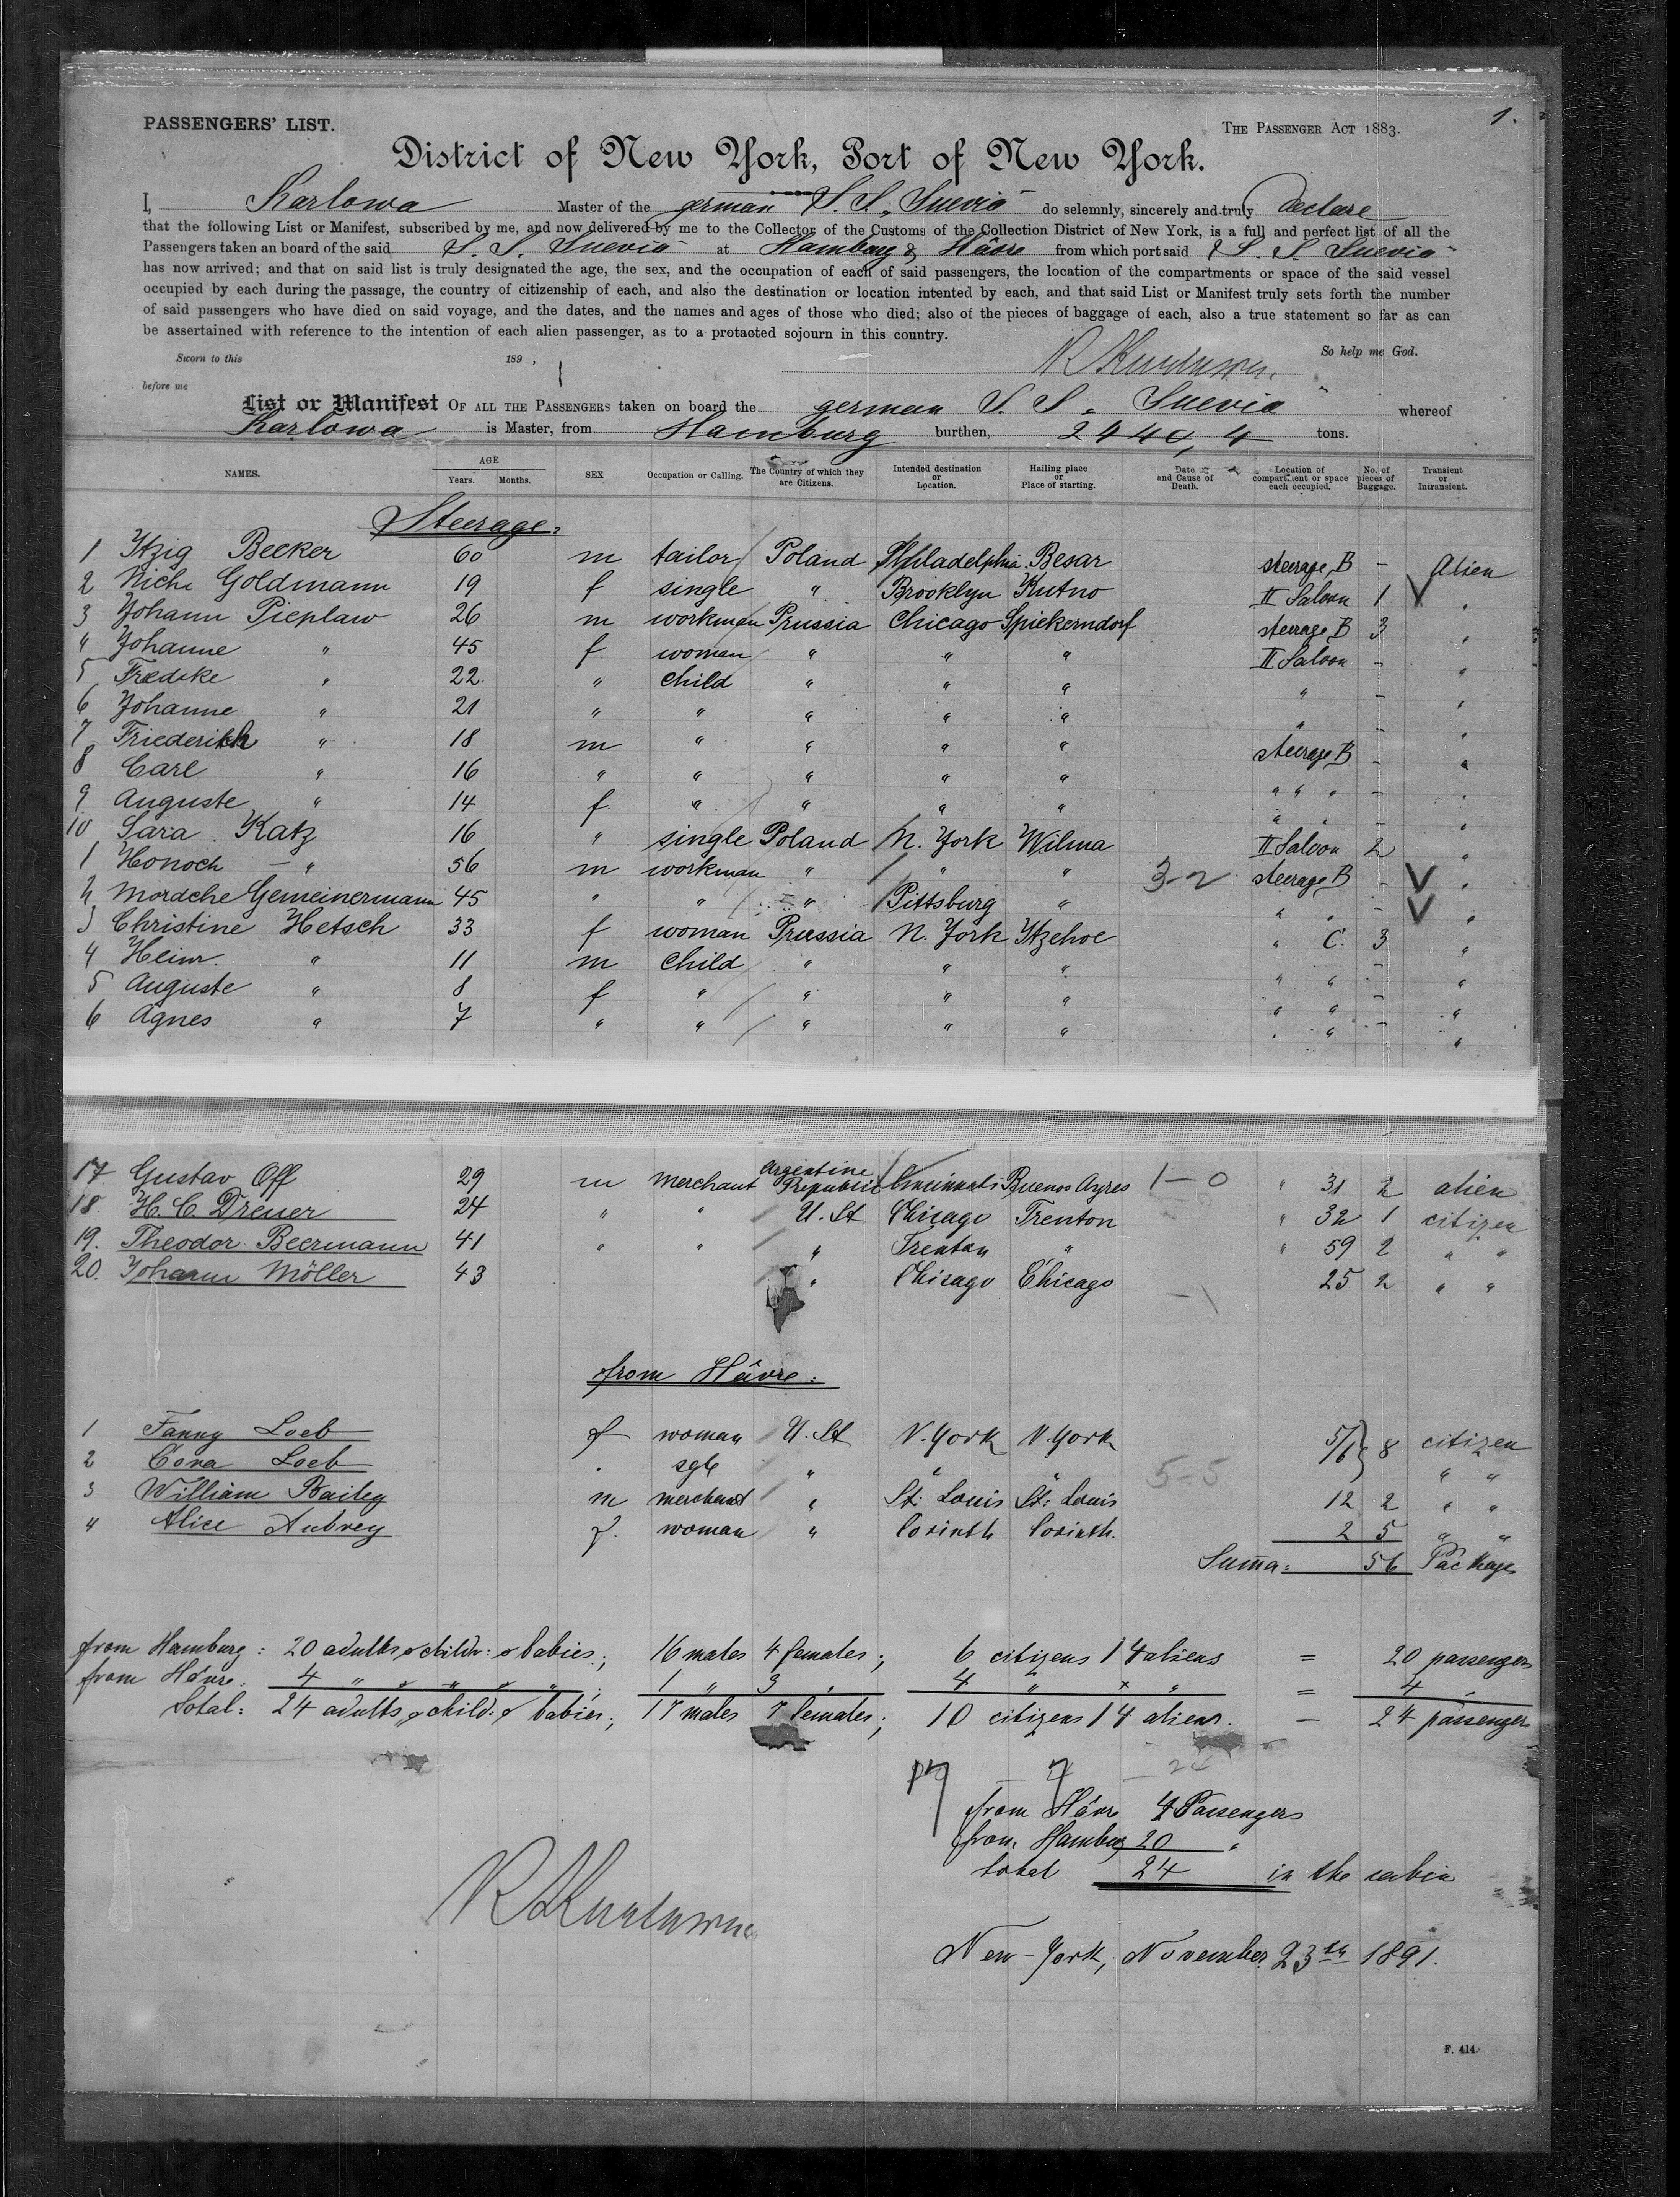 PASSENGERS' LIST.
THE PASSENGER ACT 1883.
1.
District of New York, Port of New York.
I, Karlowa Master of the german S. S. "Suevia" do selemnly, sincerely and truly declare
that the following List or Manifest, subscribed by me, and now delivered by me to the Collector of the Customs of the Collection District of New York, is a full and perfect list of all the
Passengers taken an board of the said S. S. Suevia" at Hamburg & Hâvre from which port said S. S. Suevia"
has now arrived; and that on said list is truly designated the age, the sex, and the occupation of each of said passengers, the location of the compartments or space of the said vessel
occupied by each during the passage, the country of citizenship of each, and also the destination or location intented by each, and that said List or Manifest truly sets forth the number
of said passengers who have died on said voyage, and the dates, and the names and ages of those who died; also of the pieces of baggage of each, also a true statement so far as can
be assertained with reference to the intention of each alien passenger, as to a protaoted sojourn in this country.
Sworn to this 189 , So help me God.
before me
List or Manifest OF ALL THE PASSENGERS taken on board the german S. S. "Suevia" whereof
Karlowa is Master, from Hamburg burthen, 2440,4 tons.
NAMES. AGE Years. Months. SEX Occupation or Calling. The Country of which they are Citizens. Intended destination or Location. Hailing place or Place of starting. Date and Cause of Death. Location of compartment or space each occupied. No. of pieces of Baggage. Transient or Intransient.
Steerage:
1 Itzig Becker 60 m tailor Poland Philadelphia Besar steerage B - Alien
2 Niche Goldmann 19 f single " Brooklyn Kutno II Saloon 1 "
3 Johann Pieplaw 26 m workman Prussia Chicago Spiekerndorf steerage B 3 "
4 Johanne " 45 f woman " " " II Saloon - "
5 Fredske " 22 " child " " " " - "
6 Johanne " 21 " " " " " " - "
7 Friederikh " 18 m " " " " steerage B - "
8 Carl " 16 " " " " " " " " - "
9 Auguste " 14 f. " " " " " " - "
10 Sara Katz 16 " single Poland N. York Wilna II Saloon 2 "
1 Honoch - " 56 m workman " " " 3-2 steerage B - "
2 Mordche Gemeinermann 45 " " " Pittsburg " " " - "
3 Christine Hetsch 33 f woman Prussia N. York Itzehoe " C. 3 "
4 Heinr. " 11 m child " " " " " - "
5 Auguste " 8 f " " " " " " - "
6 Agnes " 7 " " " " " " " - "
17. Gustav Off 29 m merchant Argentine Republic Cincinnati Buenos Ayres 1-0 " 31 2 alien
18. H. C. Dreuer 24 " " U. St Chicago Trenton " 32 1 citizen
19. Theodor Beermann 41 " " " Trenton " " 59 2 " "
20. Johann Möller 43 " Chicago Chicago -1 25 2 " "
from Hâvre:
1 Fanny Loeb f woman U. St N. York N. York 5/6 } 8 citizen
2 Cora Loeb " sgle " " " " "
3 William Bailey m merchant " St: Louis St: Louis 5-5 12 2 " "
4 Alice Aubrey f. woman " Corinth Corinth. 2 5 " "
Summa: 56 Package
from Hamburg: 20 adults o childr: o babies; 16 males 4 females; 6 citizens 14 aliens = 20 passengers
from Hâvre: 4 " o " o " ; 1 " 3 " 4 " x " = 4 "
Total: 24 adults o child: o babies; 17 males 7 females; 10 citizens 14 aliens. - 24 passengers
17 - 7 - 24
from Hâvre 4 Passengers
from Hamburg 20 "
total 24 in the cabin
New-York, November 23th 1891.
F. 414.